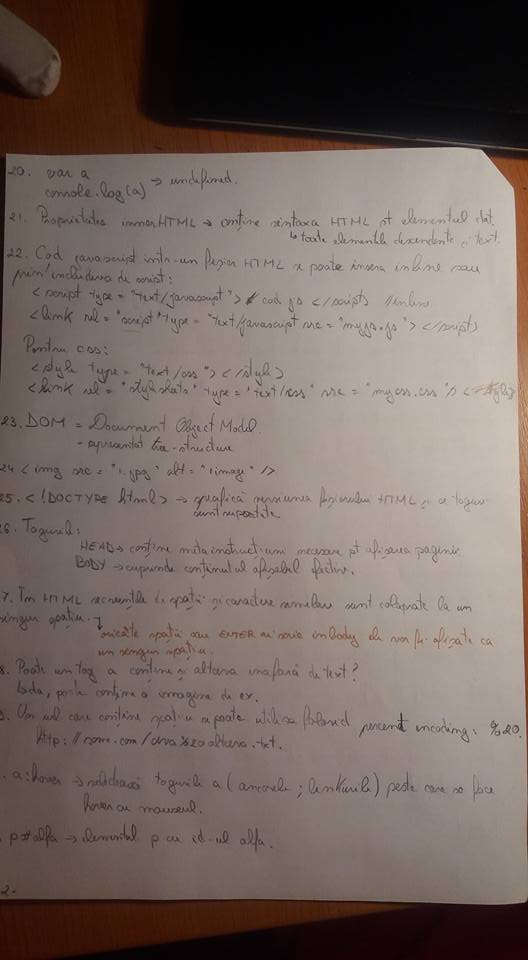 20. var a
console.log(a) → undefined.
21. Proprietatea innerHTML → conține sintaxa HTML pt elementul dat,
↳ toate elementele descendente și text.
22. Cod javascript intr-un fișier HTML se poate insera inline sau
prin includerea de script:
<script type="text/javascript"> cod js </script> //inline
<link rel="script" type="text/javascript src="myjs.js"></script>
Pentru css:
<style type="text/css"></style>
<link rel="style shets" type="text/css" src="mycss.css"/>
23. DOM = Document Object Model.
- reprezentat tree-structure
24 <img src="1.jpg" alt="1image"/>
25. <!DOCTYPE html> → specifică versiunea fișierului HTML și ce taguri
sunt suportate
26. Tagurile:
HEAD → conține metainstrucțiuni necesare pt afișarea paginii
BODY → cuprinde conținutul afișabil efectiv.
7. În HTML secvențele de spații și caractere similare sunt colapsate la un
singur spațiu.
oricâte spații sau ENTER ai scrie in body ele vor fi afișate ca
un singur spațiu.
8. Poate un tag a conține și altceva inafară de text?
poate conține o imagine de ex.
9. Un url care conține spațiu se poate utiliza folosind percent encoding: %20.
http://some.com/ceva%20altceva.txt.
. a:hover → tagurile a (ancorele; linkurile) peste care se face
hover cu mouseul.
. p#alfa → elementul p cu id-ul alfa.
2-